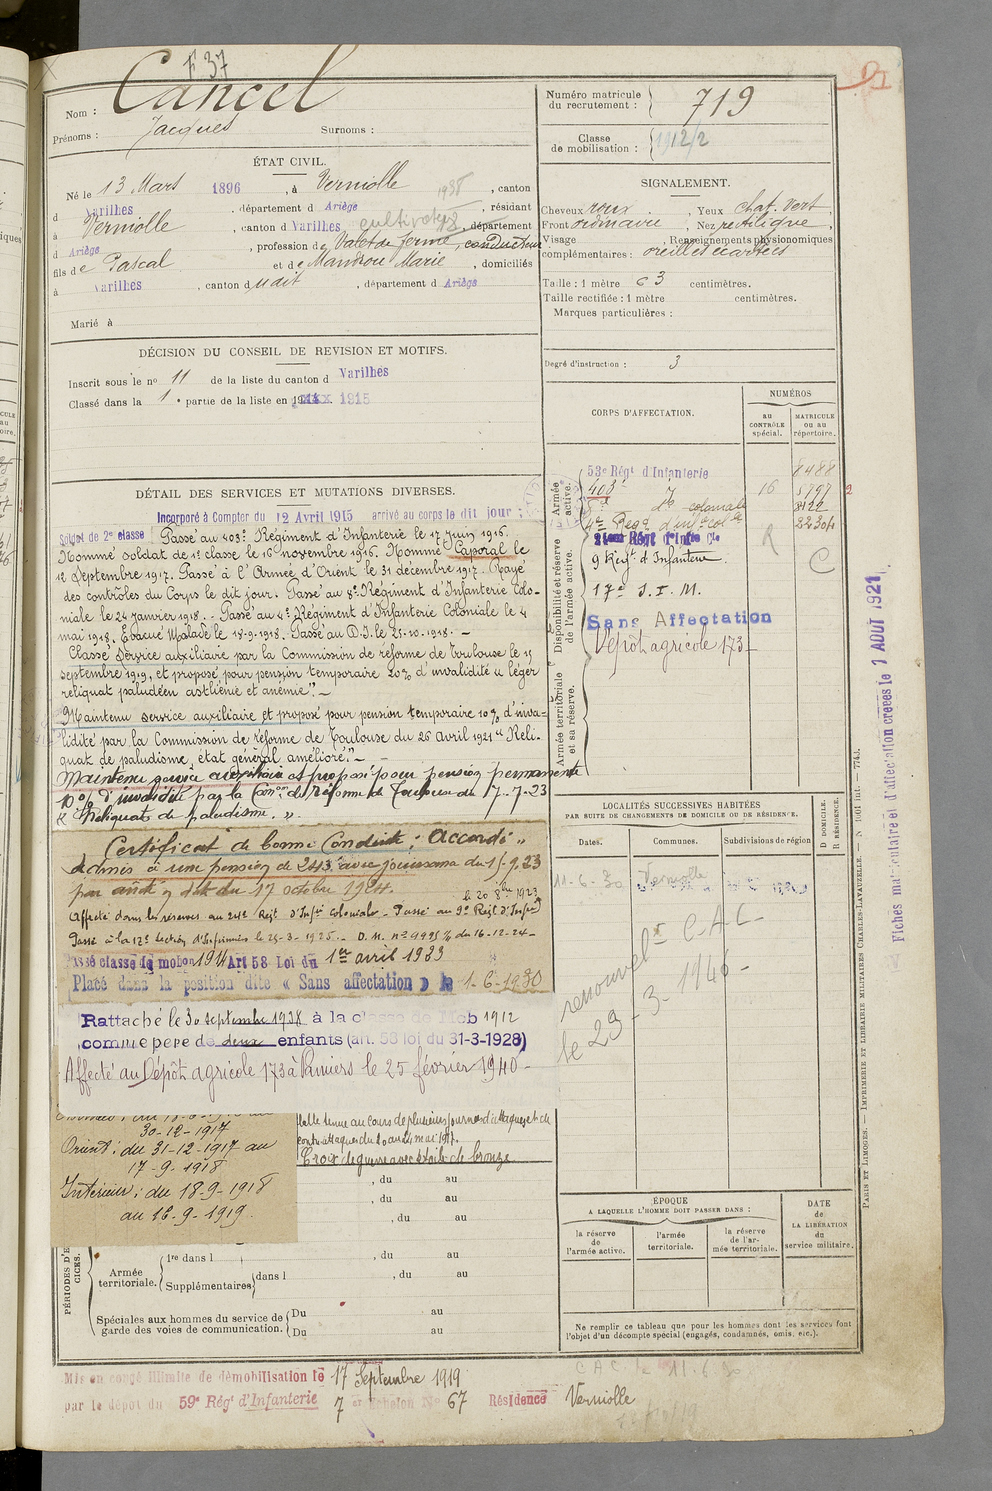 F 37
Nom : Cancel
Prénoms : Jacques Surnoms :
Numéro matricule du recrutement : 719
Classe de mobilisation : 1912/2
ÉTAT CIVIL.
Né le 13 Mars 1896, à Verniolle 1938, canton
d Varilhes, département d Ariège, résidant
à Verniolle, canton d Varilhes cultivateur, département
d Ariège, profession de Valet de ferme, conducteur
fils de Pascal et de Mandrou Marie, domiciliés
à Varilhes, canton du dit, département d Ariège
Marié à
SIGNALEMENT.
Cheveux roux, Yeux chat. vert,
Front ordinaire, Nez rectiligne,
Visage , Renseignements physionomiques
complémentaires : oreilles écartées
Taille : 1 mètre 63 centimètres.
Taille rectifiée : 1 mètre centimètres.
Marques particulières :
Degré d'instruction : 3
DÉCISION DU CONSEIL DE REVISION ET MOTIFS.
Inscrit sous le no 11 de la liste du canton d Varilhes
Classé dans la 1e partie de la liste en 1915
CORPS D'AFFECTATION.
NUMÉROS
AU CONTRÔLE spécial.
MATRICULE OU AU répertoire.
Armée active.
Disponibilité et réserve de l'armée active.
Armée territoriale et sa réserve.
53e Régt d'Infanterie 8488
403e 16 5797
8e de coloniale 8122
4e Régt d'inf colle 22304
24e Régt d'Infie Cle R
9 Régt d'Infanterie C
17e S.I.M.
Sans Affectation
Dépôt agricole 173
DÉTAIL DES SERVICES ET MUTATIONS DIVERSES.
Incorporé à Compter du 12 Avril 1915 arrivé au corps le dit jour
Soldat de 2e classe Passé au 403e Régiment d'Infanterie le 17 juin 1916.
Nommé soldat de 1e classe le 16 novembre 1916. Nommé Caporal le
12 Septembre 1917. Passé à l'Armée d'Orient le 31 décembre 1917. Rayé
des contrôles du Corps le dit jour. Passé au 8e Régiment d'Infanterie Colo-
niale le 24 janvier 1918. Passé au 4e Régiment d'Infanterie Coloniale le 4
mai 1918. Evacué Malade le 18-9-1918. Passé au D.I. le 25-10-1918. -
Classé Service auxiliaire par la Commission de réforme de Toulouse le 15
septembre 1919, et proposé pour pension temporaire 20% d'invalidité "léger
reliquat paludéen asthénie et anémie". -
Maintenu service auxiliaire et proposé pour pension temporaire 10% d'inva-
lidité par la Commission de réforme de Toulouse du 26 Avril 1921 "Reli-
quat de paludisme, état général amélioré". -
Maintenu service auxiliaire et proposé pour pension permanente
10% d'invalidité par la Comon de Réforme de Toulouse du 7-7-23
"Reliquats de paludisme."
Certificat de bonne Conduite : "Accordé"
Admis à une pension de 243f avec jouissance du 15.9.23
par arrêté en date du 17 octobre 1924.
le 20 8bre 1923
Affecté dans les réserves au 24e Régt d'Infie Coloniale - Passé au 9e Régt d'Infie
Passé à la 17e Section d'Infirmiers le 25-3-1925. - D.M. no 9995 % du 16-12-24 -
Passé classe de mobon 1914 Art 58 Loi du 1er avril 1923
Placé dans la position dite « Sans affectation » le 1-6-1930
Rattaché le 30 septembre 1938 à la classe de Mob 1912
comme père de deux enfants (art. 58 loi du 31-3-1928)
Affecté au Dépôt agricole 173 à Pamiers le 25 février 1940 -
30-12-1917
Orient : du 31-12-1917 au
17-9-1918
Intérieur : du 18-9-1918
au 16-9-1919.
belle tenue au cours de plusieurs journées d'attaques et de
contre attaques du 20 au 24 mai 1917.
Croix de guerre avec étoile de bronze
, du au
, du au
, du au
PÉRIODES D'E
CICES.
Armée territoriale. 1re dans l , du au
Supplémentaires dans l , du au
Spéciales aux hommes du service de garde des voies de communication. Du au
Du au
LOCALITÉS SUCCESSIVES HABITÉES
PAR SUITE DE CHANGEMENTS DE DOMICILE OU DE RÉSIDENCE.
Dates. Communes. Subdivisions de région D DOMICILE. R RÉSIDENCE.
11-6-30 Verniolle
renouvelé C.A.C-
le 23-3-1940-
ÉPOQUE
A LAQUELLE L'HOMME DOIT PASSER DANS :
la réserve de l'armée active.
l'armée territoriale.
la réserve de l'armée territoriale.
DATE de LA LIBÉRATION du service militaire.
Ne remplir ce tableau que pour les hommes dont les services font
l'objet d'un décompte spécial (engagés, condamnés, omis, etc.).
C.A.C. le 11.6.30
Mis en congé illimité de démobilisation le 17 Septembre 1919
par le dépôt du 59e Régt d'Infanterie 7e Echelon No 67 Résidence Verniolle
Fiches matriculaire et d'affectation créées le 1 AOUT 1921
PARIS ET LIMOGES. — IMPRIMERIE ET LIBRAIRIE MILITAIRES CHARLES-LAVAUZELLE. — N 1601 int. — 7743.